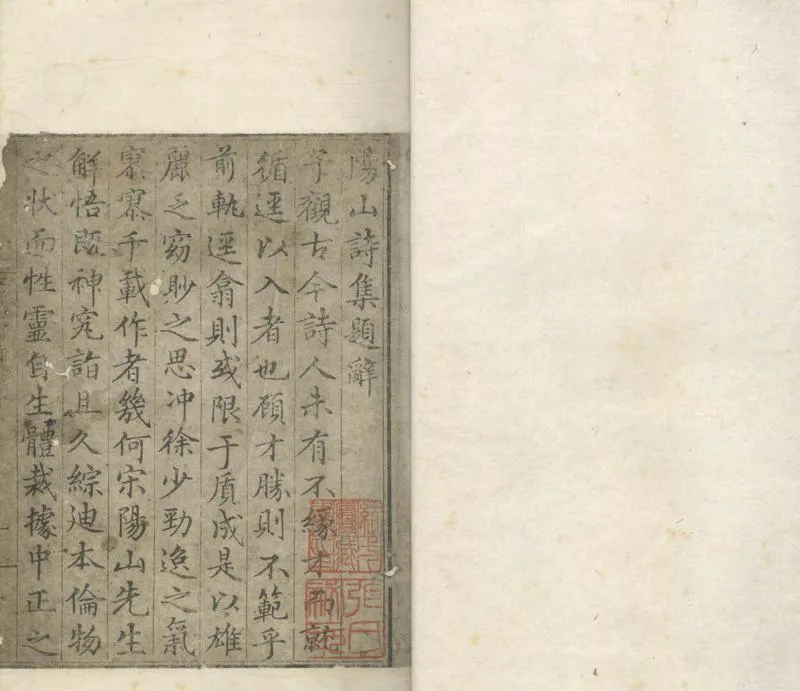 陽山詩集題辭
予觀古今詩人未有不緣才而就
循逕以入者也顧才勝則不範乎
前軌逕翕則或限于質成是以雄
麗乏窈眇之思冲徐少勁逸之氣
寥寥千載作者幾何宋陽山先生
解悟既神究詣且久綜迪本倫物
之狀而性靈自生體裁據中正之